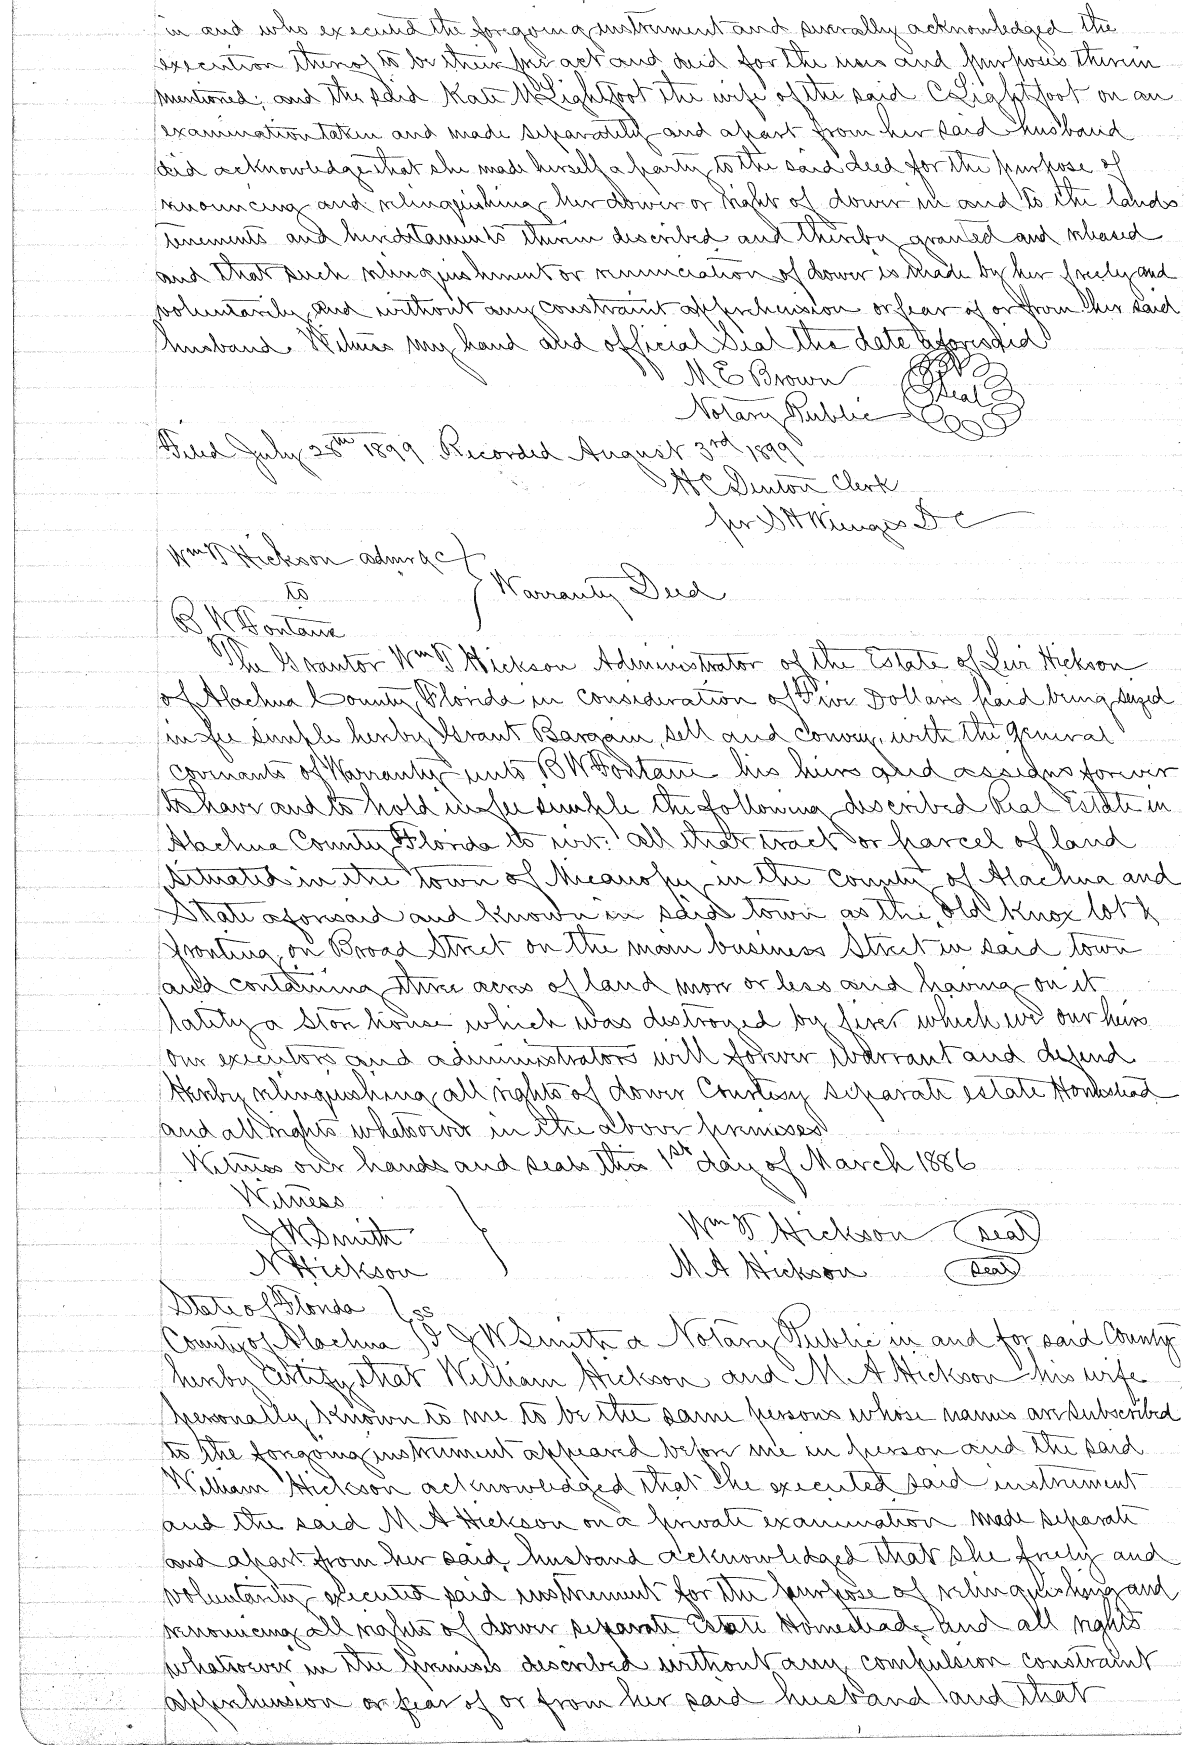 in and who executed the foregoing instrument and severally acknowledged the
execution thereof to be their free act and deed for the uses and purposes therein
mentioned; and the said Kate M Lightfoot the wife of the said C Lightfoot on an
examination taken and made separately and apart from her said husband
did acknowledge that she made herself a party to the said deed for the purpose of
renouncing and relinquishing her dower or right of dower in and to the lands
tenements and hereditaments therein described and thereby granted and released
and that such relinquishment or renunciation of dower is made by her freely and
voluntarily and without any constraint apprehension or fear of or from her said
husband. Witness my hand and official Seal the date aforesaid
M E Brown
Notary Public Seal
Filed July 28th 1899 Recorded August 3rd 1899
H C Denton Clerk
per S H Wienges D C
Wm T Hickson admr &c
to Warranty Deed
B W Fontane
The Grantor Wm T Hickson Administrator of the Estate of Levi Hickson
of Alachua County Florida in consideration of Five Dollars paid being seized
in fee simple hereby Grant Bargain, sell and convey, with the general
covenants of Warranty unto B W Fontane his heirs and assigns forever
to have and to hold in fee simple the following described Real Estate in
Alachua County Florida to wit: all that tract or parcel of land
situated in the town of Micanopy in the County of Alachua and
State aforesaid and known in said town as the old Knox lot &
fronting on Broad Street on the main business Street in said town
and containing three acres of land more or less and having on it
lately a Store house which was destroyed by fire, which we our heirs
our executors and administrators will forever warrant and defend
Hereby relinquishing all rights of dower Courtesy separate estate Homestead
and all rights whatsoever in the above premises
Witness our hands and seals this 1st day of March 1886
Witness
J W Smith Wm T Hickson seal
N Hickson M A Hickson seal
State of Florida ss
County of Alachua I J W Smith a Notary Public in and for said County
hereby certify that William Hickson and M A Hickson his wife
personally known to me to be the same persons whose names are subscribed
to the foregoing instrument appeared before me in person and the said
William Hickson acknowledged that he executed said instrument
and the said M A Hickson on a private examination made separate
and apart from her said husband acknowledged that she freely and
voluntarily executed said instrument for the purpose of relinquishing and
renouncing all rights of dower separate Estate Homestead and all rights
whatsoever in the premises described without any compulsion constraint
apprehension or fear of or from her said husband and that